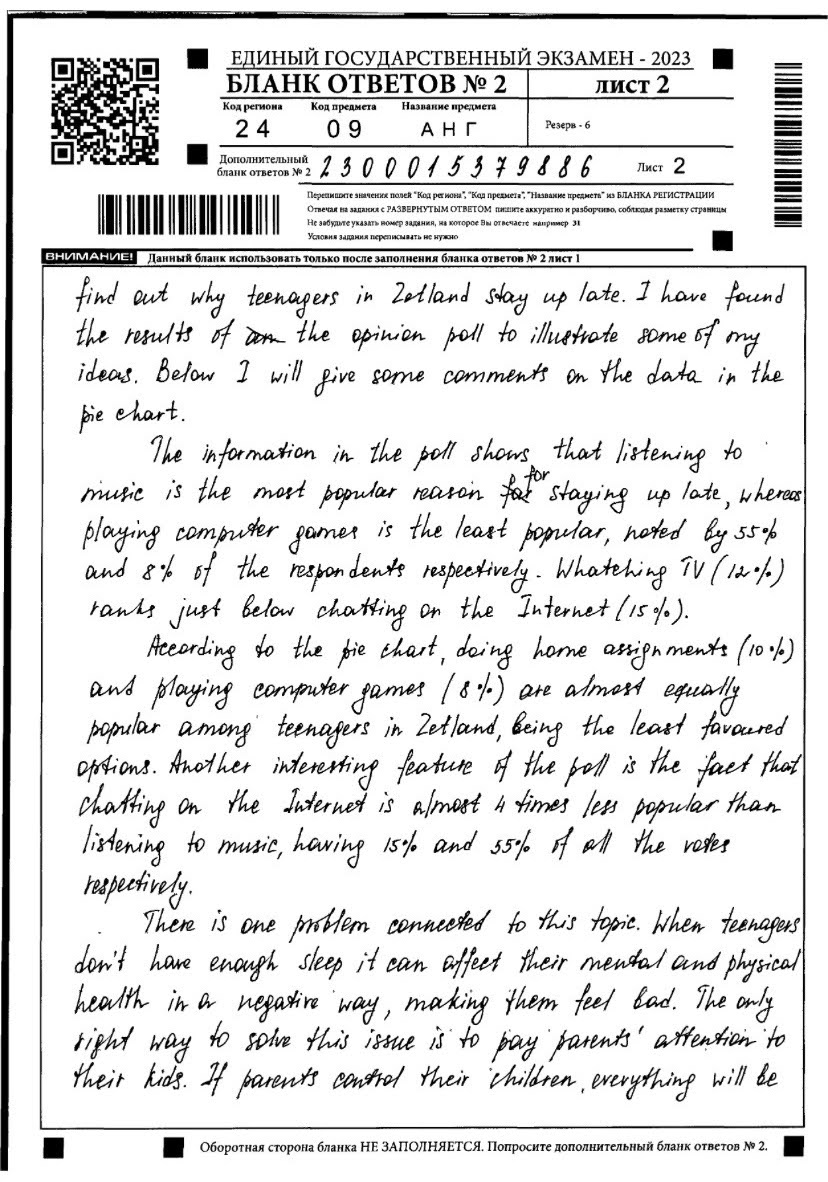 ЕДИНЫЙ ГОСУДАРСТВЕННЫЙ ЭКЗАМЕН - 2023
БЛАНК ОТВЕТОВ № 2
лист 2
Код региона Код предмета Название предмета
24 09 АНГ
Резерв - 6
Дополнительный бланк ответов № 2 2300015379886 Лист 2
Перепишите значения полей "Код региона", "Код предмета", "Название предмета" из БЛАНКА РЕГИСТРАЦИИ
Отвечая на задания с РАЗВЕРНУТЫМ ОТВЕТОМ пишите аккуратно и разборчиво, соблюдая разметку страницы
Не забудьте указать номер задания, на которое Вы отвечаете например 31
Условия задания переписывать не нужно
ВНИМАНИЕ! Данный бланк использовать только после заполнения бланка ответов № 2 лист 1
find out why teenagers in Zetland stay up late. I have found
the results of the opinion poll to illustrate some of my
ideas. Below I will give some comments on the data in the
pie chart.
The information in the poll shows that listening to
music is the most popular reason for staying up late, whereas
playing computer games is the least popular, noted by 55%
and 8% of the respondents respectively. Whatching TV (12%)
ranks just below chatting on the Internet (15%).
According to the pie chart, doing home assignments (10%)
and playing computer games (8%) are almost equally
popular among teenagers in Zetland, being the least favoured
options. Another interesting feature of the poll is the fact that
chatting on the Internet is almost 4 times less popular than
listening to music, having 15% and 55% of all the votes
respectively.
There is one problem connected to this topic. When teenagers
don't have enough sleep it can affect their mental and physical
health in a negative way, making them feel bad. The only
right way to solve this issue is to pay parents' attention to
their kids. If parents control their children, everything will be
Оборотная сторона бланка НЕ ЗАПОЛНЯЕТСЯ. Попросите дополнительный бланк ответов № 2.